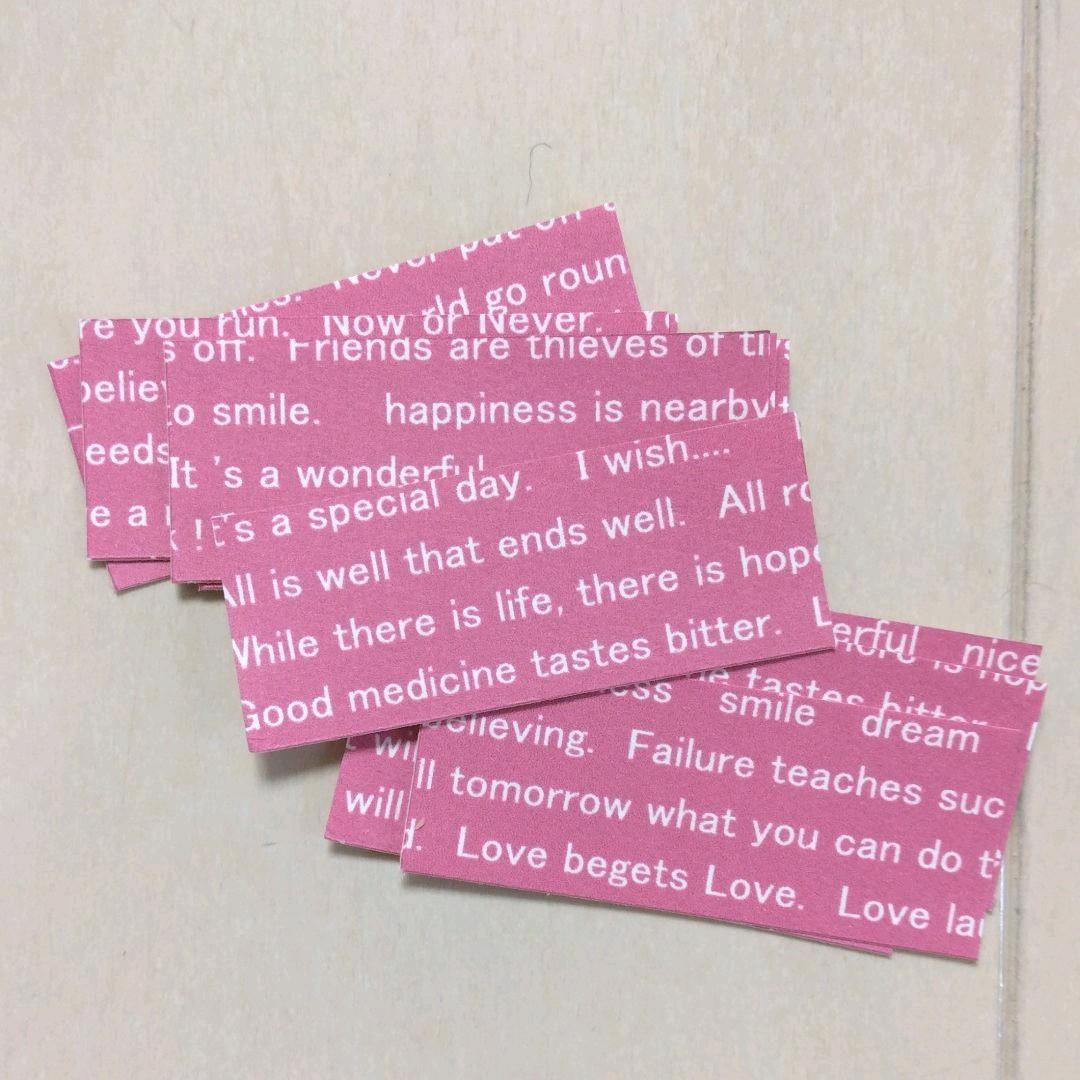 Never put off
go roun
re you run. Now or Never.
s off. Friends are thieves of
believ
to smile. happiness is nearby
eeds
It 's a wonderful
e a
It's a special day. I wish....
All is well that ends well. All ro
While there is life, there is hope
Good medicine tastes bitter.
erful nice
there is hop
tastes bitter
ess smile dream
believing. Failure teaches suc
wi
ll tomorrow what you can do t
will
d. Love begets Love. Love lau